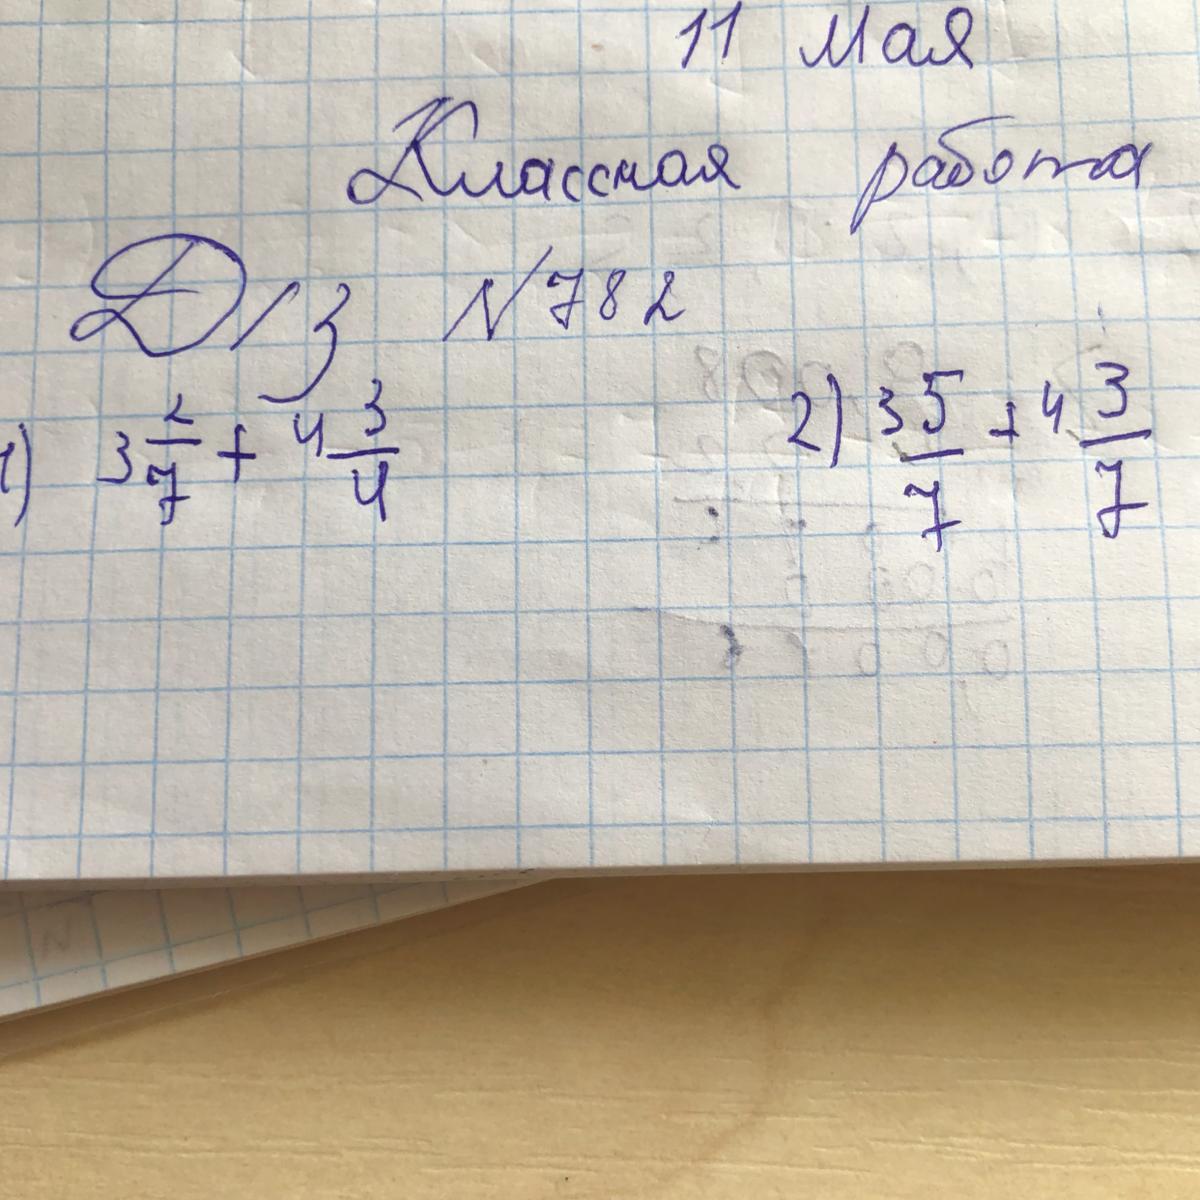 11 Мая
Классная работа
Д/з N782
1) 3 2/7 + 4 3/4
2) 3 5/7 + 4 3/7